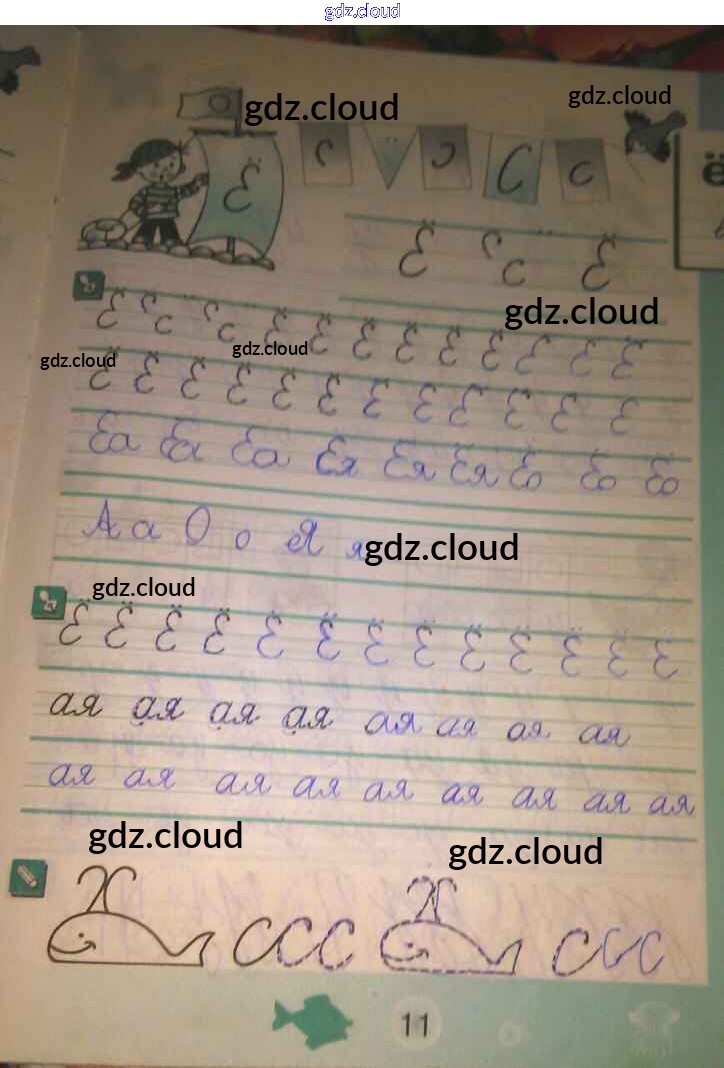 gdz.cloud
gdz.cloud
gdz.cloud
Ё
С с
ё
Ё Ё
gdz.cloud
Ё Ё Ё Ё Ё Ё Ё Ё Ё Ё
gdz.cloud
gdz.cloud
Ё Ё Ё Ё Ё Ё Ё Ё Ё Ё Ё Ё
Ёа Ёа Ёа Ёя Ёя Ёя Ёо Ёо Ёо
А а О о Я я
gdz.cloud
gdz.cloud
Ё Ё Ё Ё Ё Ё Ё Ё Ё Ё Ё Ё Ё
ая ая ая ая ая ая ая ая
ая ая ая ая ая ая ая ая ая
gdz.cloud
gdz.cloud
С С С С С С
11